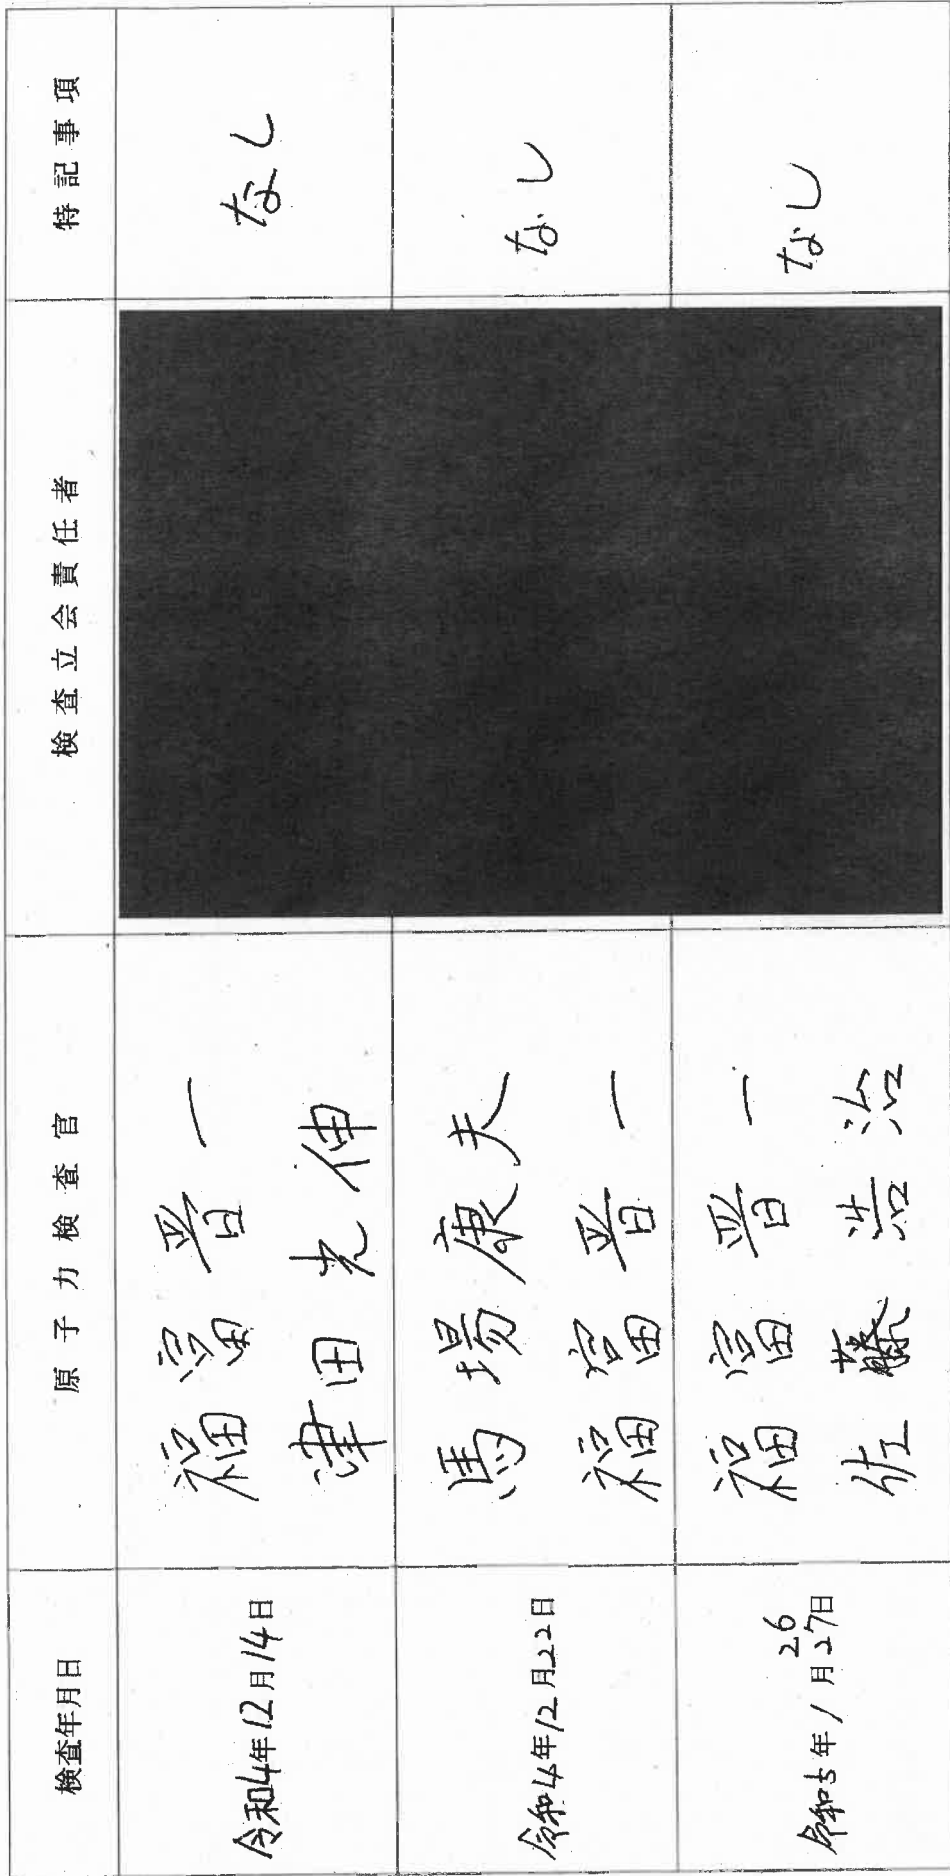 検査年月日 原子力検査官 検査立会責任者 特記事項
令和4年12月14日 福富晋一 なし
津田光伸
令和4年12月22日 馬場康夫 なし
福富晋一
26
令和5年1月27日 福富晋一 なし
佐藤浩治